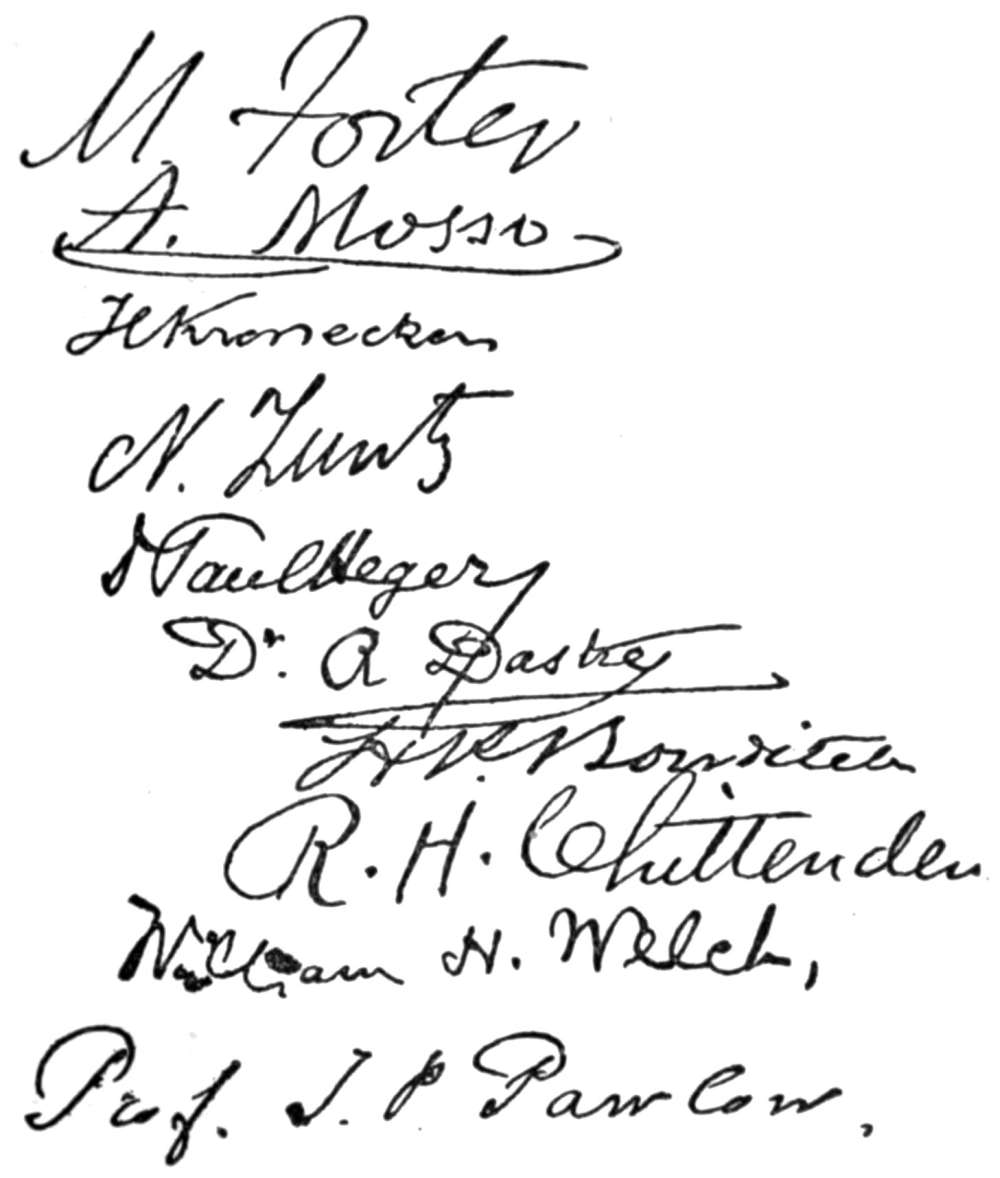 M. Foster
A. Mosso
H Kronecker
N. Zuntz
Dr Paul Heger
Dr. A Dastre
H. P. Bowditch
R. H. Chittenden
William H. Welch,
Prof. J. P Pawlow.